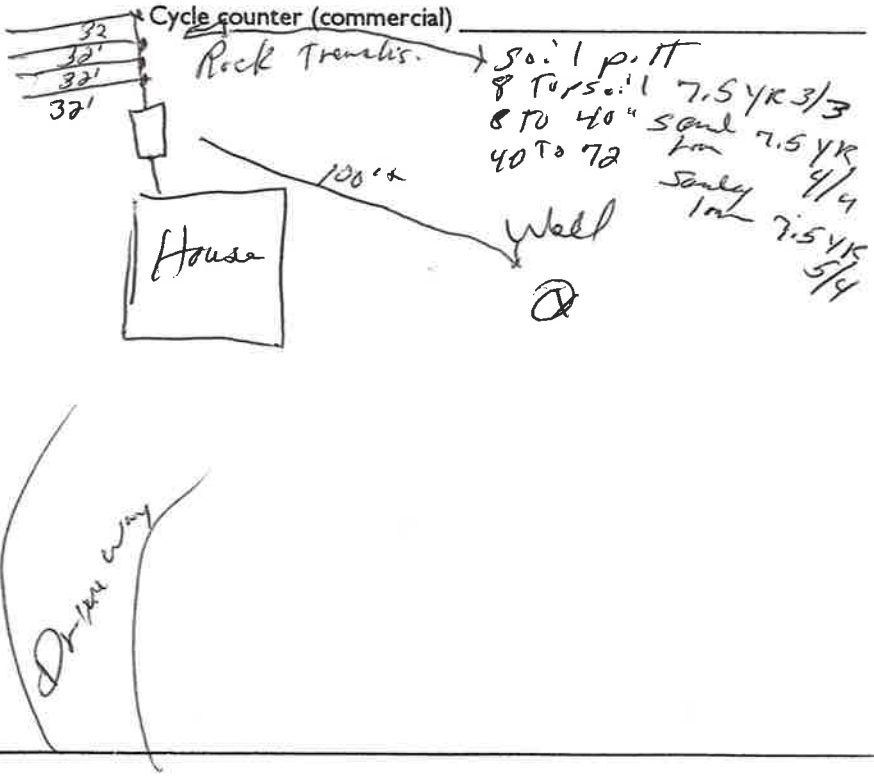 Cycle counter (commercial)
32
32'
32'
32'
Rock Trenches.
Soil pitt
8 Topsoil 7.5 YR 3/3
8 TO 40" Sand
7.5 YR
4/4
40 TO 72
Sandy
7.5 YR
5/4
100'+
Well
House
Drive way